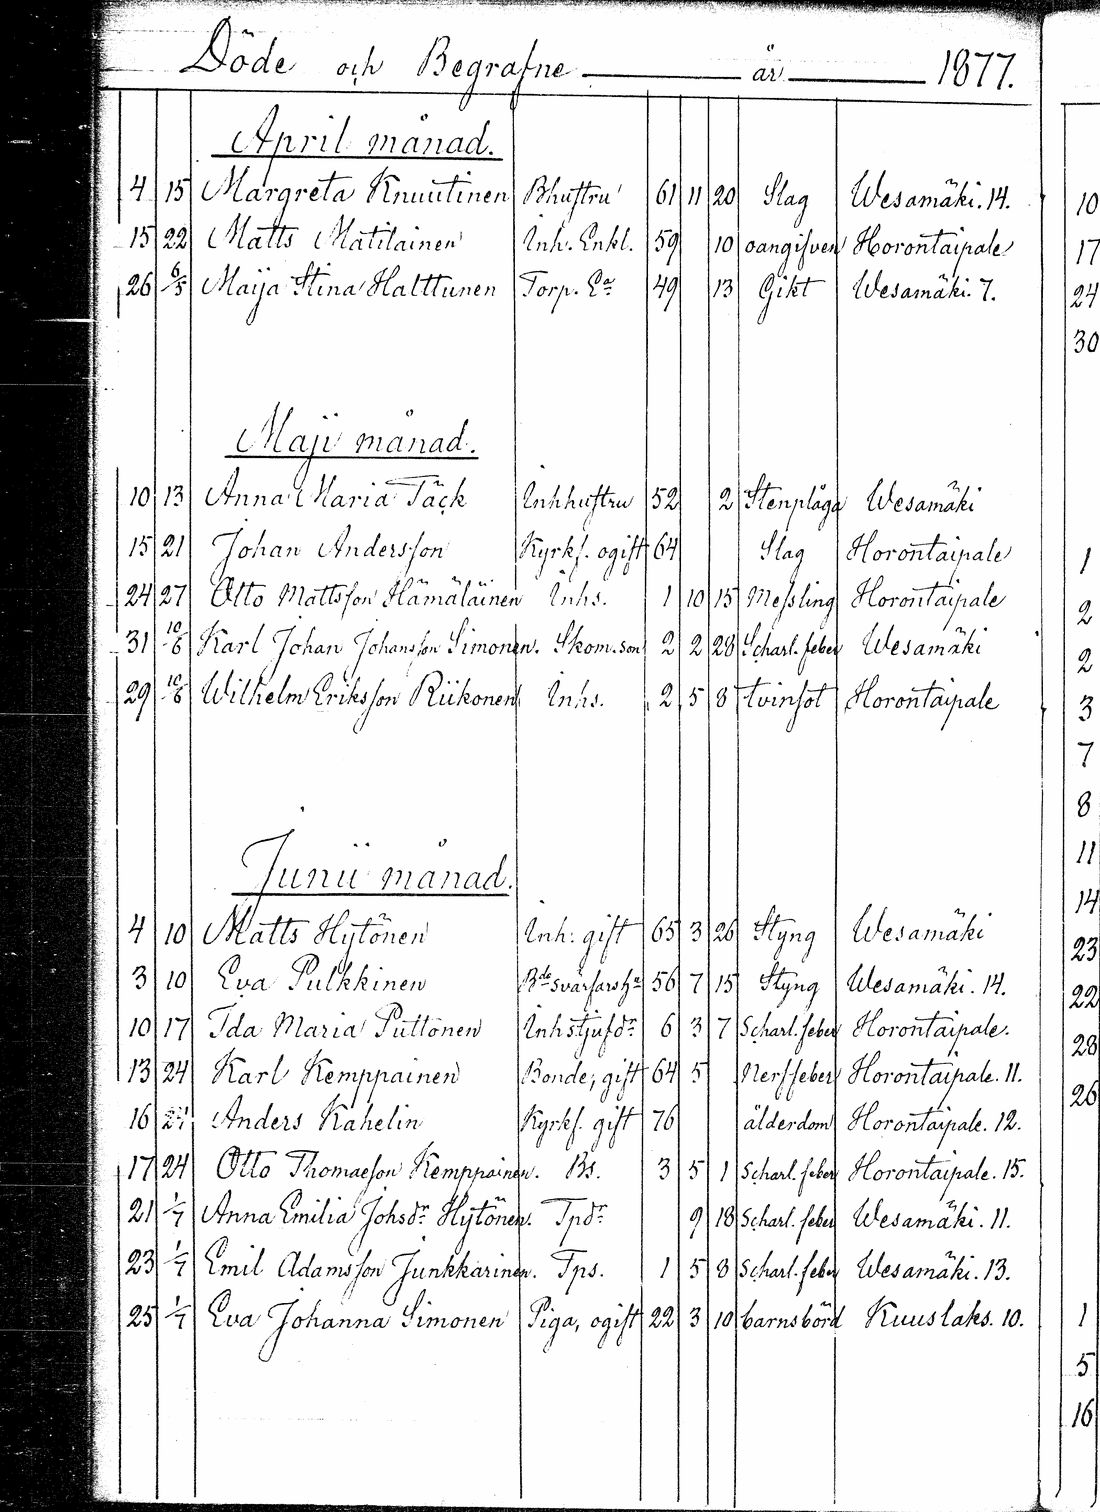 Döde och Begrafne år 1877.
April månad.
4 15 Margreta Knuutinen Bhustru 61 11 20 Slag Wesamäki. 14.
15 22 Matts Matilainen Inh. Enkl. 59 10 oangifven Horontaipale
26 6/5 Maija Stina Halttunen Torp. Ea 49 13 Gikt Wesamäki. 7.
Maji månad.
10 13 Anna Maria Täck Inhhustru 52 2 Stenplåga Wesamäki
15 21 Johan Andersson Kyrkf. ogift 64 Slag Horontaipale
24 27 Otto Mattsson Hämäläinen Inhs. 1 10 15 Messling Horontaipale
31 10/6 Karl Johan Johansson Simonen. Skom. son 2 2 28 Scharl. feber Wesamäki
29 10/6 Wilhelm Eriksson Riikonen Inhs. 2 5 8 tvinsot Horontaipale
Junii månad.
4 10 Matts Hytönen Inh: gift 65 3 26 Styng Wesamäki
3 10 Eva Pulkkinen Bde svärfars ha 56 7 15 Styng Wesamäki. 14.
10 17 Ida Maria Puttonen Inhstjufdr 6 3 7 Scharl. feber Horontaipale.
13 24 Karl Kemppainen Bonde, gift 64 5 Nerffeber Horontaipale. 11.
16 24 Anders Kahelin Kyrkf. gift 76 älderdom Horontaipale. 12.
17 24 Otto Thomasson Kemppainen. Bs. 3 5 1 Scharl. feber Horontaipale. 15.
21 1/7 Anna Emilia Johsdr Hytönen. Tpdr 9 18 Scharl. feber Wesamäki. 11.
23 1/7 Emil Adamsson Junkkarinen. Tps. 1 5 8 Scharl. feber Wesamäki. 13.
25 1/7 Eva Johanna Simonen Piga, ogift 22 3 10 barnsbörd Kuuslaks. 10.
10
17
24
30
1
2
2
3
7
8
11
14
23
22
28
26
1
5
16